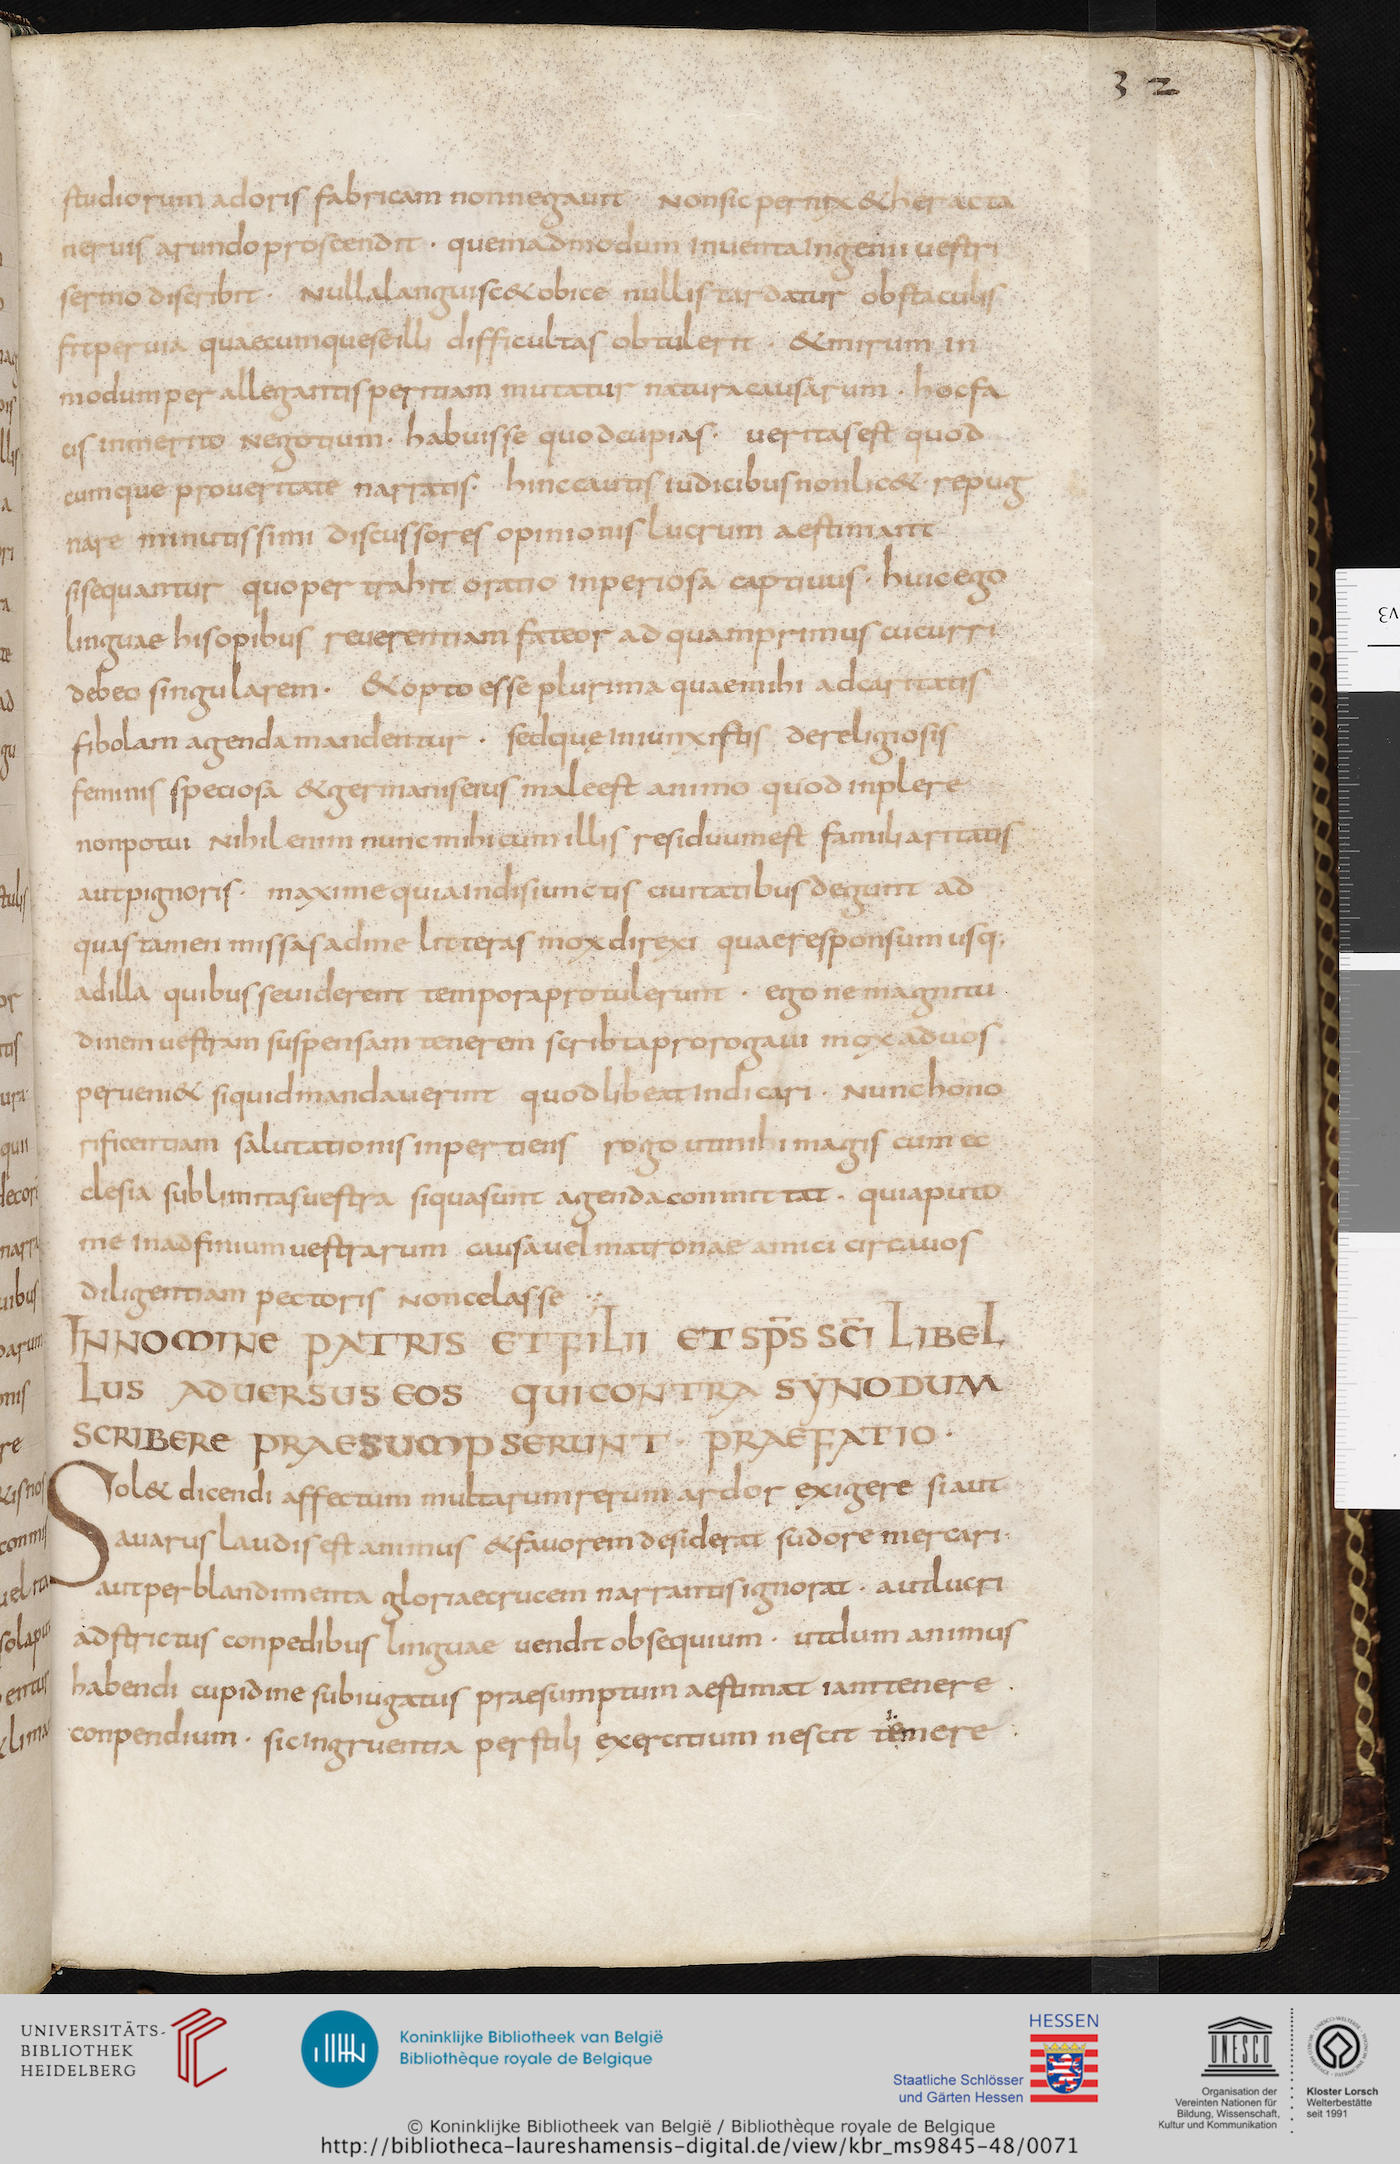 32
studiorum ad oris fabricam non negavit Non sic pernix & heracta
nervis arundo proscendit · quemadmodum inventa ingenii vestri
sermo discribit · Nulla languisc& obice nullis tardatur obstaculis
fit pervia quaecumque se illi difficultas obtulerit · & mirum in
modum per allegantis peritiam mutatur natura causarum · hoc fa
cis inmerito negotium · habuisse quod cupias · veritas est quod
cumque pro veritate narratis · hinc cautis iudicibus non lic& repug
nare minutissimi discussores opinionis lucrum aestimant
si sequantur quo per trahit oratio inperiosa captivus · huic ego
linguae his opibus reverentiam fateor ad quam primus cucurri
debeo singularem · & opto esse plurima quae mihi ad caritatis
fibolam agenda mandentur · sed que iniunxistis de religiosis
feminis speciosa & germanis eius male est animo quod inplere
non potui Nihil enim nunc mihi cum illis residuum est familiaritatis
aut pignoris · maxime quia in disiunctis civitatibus degunt ad
quas tamen missas ad me litteras mox direxi quae responsum usq;
ad illa quibus se viderent tempora protulerunt · ego ne magnitu
dinem vestram suspensam tenerem scribta prorogavi mox ad vos
perveni& si quid mandaverint quod libeat indicari · Nunc hono
rificentiam salutationis inpertiens rogo ut mihi magis cum ec
clesia sublimitas vestra si qua sunt agenda committat · quia puto
me in adfinium vestrarum causa vel matronae amici circa vos
diligentiam pectoris non celasse
IN NOMINE PATRIS ET FILII ET SP̄S SC̄I LIBEL
LUS ADVERSUS EOS QUI CONTRA SYNODUM
SCRIBERE PRAESUMPSERUNT · PRAEFATIO ·
Sol& dicendi affectum multarum rerum ardor exigere si aut
avarus laudis est animus & favorem desiderat sudore mercari ·
aut per blandimenta gloriae crucem narrantis ignorat · aut lucri
adstrictus conpedibus linguae vendit obsequium · ut dum animus
habendi cupidine subiugatus praesumptum aestimat iam tenere ·
conpendium · sic ingruentia per stili exercitium nescit temere ·
UNIVERSITÄTS-
BIBLIOTHEK
HEIDELBERG
Koninklijke Bibliotheek van België
Bibliothèque royale de Belgique
HESSEN
Staatliche Schlösser
und Gärten Hessen
UNESCO
Organisation der
Vereinten Nationen für
Bildung, Wissenschaft,
Kultur und Kommunikation
Kloster Lorsch
Welterbestätte
seit 1991
© Koninklijke Bibliotheek van België / Bibliothèque royale de Belgique
http://bibliotheca-laureshamensis-digital.de/view/kbr_ms9845-48/0071